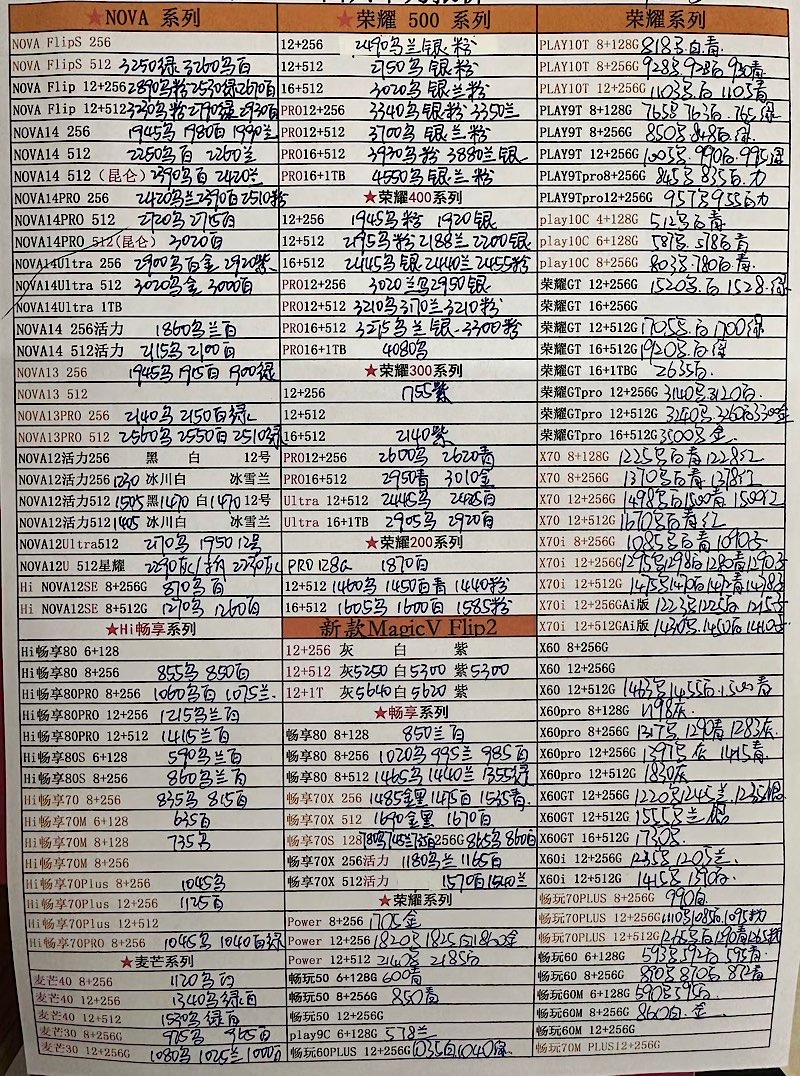 ★NOVA 系列
NOVA FlipS 256
NOVA FlipS 512 3250绿 3260乌百
NOVA Flip 12+256 2890乌粉2530绿2670百
NOVA Flip 12+512 3230乌粉2790绿2930百
NOVA14 256 1945乌 1980百 1990兰
NOVA14 512 2250乌百 2260兰
NOVA14 512 (昆仑) 2390乌百 2420兰
NOVA14PRO 256 2420乌兰2390百2510粉
NOVA14PRO 512 2720乌 2715百
NOVA14PRO 512(昆仑) 3020百
NOVA14Ultra 256 2900乌百金 2920紫
NOVA14Ultra 512 3020乌金 3000百
NOVA14Ultra 1TB
NOVA14 256活力 1860乌兰百
NOVA14 512活力 2115乌 2100百
NOVA13 256 1945乌 1915百 1900绿
NOVA13 512
NOVA13PRO 256 2140乌 2150百绿
NOVA13PRO 512 2560乌 2550百 2510绿
NOVA12活力256 黑 白 12号
NOVA12活力256 1230 冰川白 冰雪兰
NOVA12活力512 1505黑1470 白1470 12号
NOVA12活力512 1405 冰川白 冰雪兰
NOVA12Ultra512 2170乌 1950 12号
NOVA12U 512星耀
Hi NOVA12SE 8+256G 870乌百
Hi NOVA12SE 8+512G 1270乌 1260百
★Hi畅享系列
Hi畅享80 6+128
Hi畅享80 8+256 855乌 850百
Hi畅享80PRO 8+256 1060乌百 1075兰
Hi畅享80PRO 12+256 1215乌兰百
Hi畅享80PRO 12+512 1415兰百
Hi畅享80S 6+128 590乌兰百
Hi畅享80S 8+256 860乌兰百
Hi畅享70 8+256 835乌 815百
Hi畅享70M 6+128 635百
Hi畅享70M 8+128 735乌
Hi畅享70M 8+256
Hi畅享70Plus 8+256 1045乌
Hi畅享70Plus 12+256 1125百
Hi畅享70Plus 12+512
Hi畅享70PRO 8+256 1045乌 1040百绿
★麦芒系列
麦芒40 8+256 1120乌百
麦芒40 12+256 1340乌绿百
麦芒40 12+512 1530乌绿百
麦芒30 8+256G 975乌 965百
麦芒30 12+256G 1080乌 1025兰 1000百
★荣耀 500 系列
12+256 2490乌兰银粉
12+512 2750乌银粉
16+512 3020乌银兰粉
PRO12+256 3340乌银粉 3350兰
PRO12+512 3700乌银兰粉
PRO16+512 3930乌粉 3880兰银
PRO16+1TB 4550乌银兰粉
★荣耀400系列
12+256 1945乌粉 1920银
12+512 2195乌粉2188兰2200银
16+512 2445乌银2440兰2455粉
PRO12+256 3020兰乌2950银
PRO12+512 3210乌3170兰3210粉
PRO16+512 3275乌兰银 3300粉
PRO16+1TB 4080乌
★荣耀300系列
12+256 1755紫
12+512
16+512 2140紫
PRO12+256 2600乌 2620青
PRO16+512 2950青 3010金
Ultra 12+512 2445乌 2425百
Ultra 16+1TB 2905乌 2920百
★荣耀200系列
PRO 128G 1870百
12+512 1460乌 1450百青 1440粉
16+512 1605乌 1600百 1585粉
新款MagicV Flip2
12+256 灰 白 紫
12+512 灰5250 白5300 紫5300
12+1T 灰5640 白5620 紫
★畅享系列
畅享80 8+128 850兰百
畅享80 8+256 1020乌 995兰 985百
畅享80 8+512 1465乌1440兰1355绿
畅享70X 256 1485金黑1475百 1535青
畅享70X 512 1690金黑 1670百
畅享70S 128 780乌745兰735百256G 865乌860百
畅享70X 256活力 1180乌兰1165百
畅享70X 512活力 1570百1540兰
★荣耀系列
Power 8+256 1705金
Power 12+256 1820乌1825百1860金
Power 12+512 2140乌 2185百
畅玩50 6+128G 600青
畅玩50 8+256G 850青
畅玩50 12+256G
play9C 6+128G 578兰
畅玩60PLUS 12+256G 1035百1040绿
荣耀系列
PLAY10T 8+128G 818乌百青
PLAY10T 8+256G 928乌928百930青
PLAY10T 12+256G 1103乌百1105青
PLAY9T 8+128G 765乌763百765绿
PLAY9T 8+256G 850乌848百绿
PLAY9T 12+256G 1005乌990百995绿
PLAY9Tpro8+256G 845乌835百力
PLAY9Tpro12+256G 957乌955百力
play10C 4+128G 512乌百青
play10C 6+128G 587乌578百青
play10C 8+256G 803乌780百青
荣耀GT 12+256G 1520乌百 1528绿
荣耀GT 16+256G
荣耀GT 12+512G 1705乌百1700绿
荣耀GT 16+512G 1920乌百绿
荣耀GT 16+1TBG 2635百
荣耀GTpro 12+256G 3140乌3120百
荣耀GTpro 12+512G 3240乌3260百3300金
荣耀GTpro 16+512G 3500乌金
X70 8+128G 1225乌百青1228红
X70 8+256G 1370乌百青1378红
X70 12+256G 1498乌百1500青1500红
X70 12+512G 1670乌百青红
X70i 8+256G 1085乌百青
X70i 12+256G 1295乌1298百1280青
X70i 12+512G 1475乌1470百1472青
X70i 12+256GAi版 1223乌1225百
X70i 12+512GAi版 1430乌1450百
X60 8+256G
X60 12+256G
X60 12+512G 1463乌1455百1500青
X60pro 8+128G 1198灰
X60pro 8+256G 1317乌1290青1283灰
X60pro 12+256G 1397乌灰 1415青
X60pro 12+512G 1830灰
X60GT 12+256G 1220乌1245兰1235银
X60GT 12+512G 1555乌兰银
X60GT 16+512G 1730乌
X60i 12+256G 1235乌1205兰
X60i 12+512G 1415乌1390百
畅玩70PLUS 8+256G 990百
畅玩70PLUS 12+256G 1110乌1085百1095粉
畅玩70PLUS 12+512G 1265乌百1290青1265粉
畅玩60 6+128G 593乌592百595青
畅玩60 8+256G 890乌870百872青
畅玩60M 6+128G 590乌595百
畅玩60M 8+256G 860百金
畅玩60M 12+256G
畅玩70M PLUS12+256G